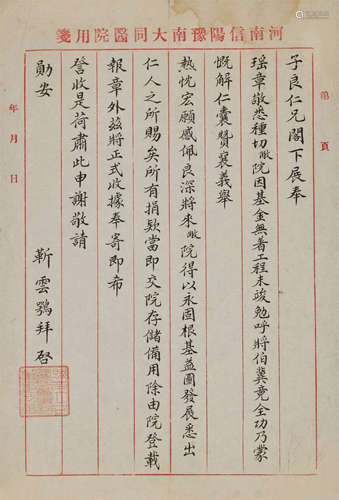 河南信陽豫南大同醫院用箋
第 頁
子良仁兄閣下展奉
瑤章敬悉種切敝院因基金無着工程未竣勉呼將伯冀竟全功乃蒙
慨解仁囊贊襄義舉
熱忱宏願感佩良深將來敝院得以永固根基益圖發展悉出
仁人之所賜矣所有捐款當即交院存儲備用除由院登載
報章外茲將正式收據奉寄即希
詧收是荷肅此申謝敬請
勛安
靳雲鶚拜啓
年 月 日